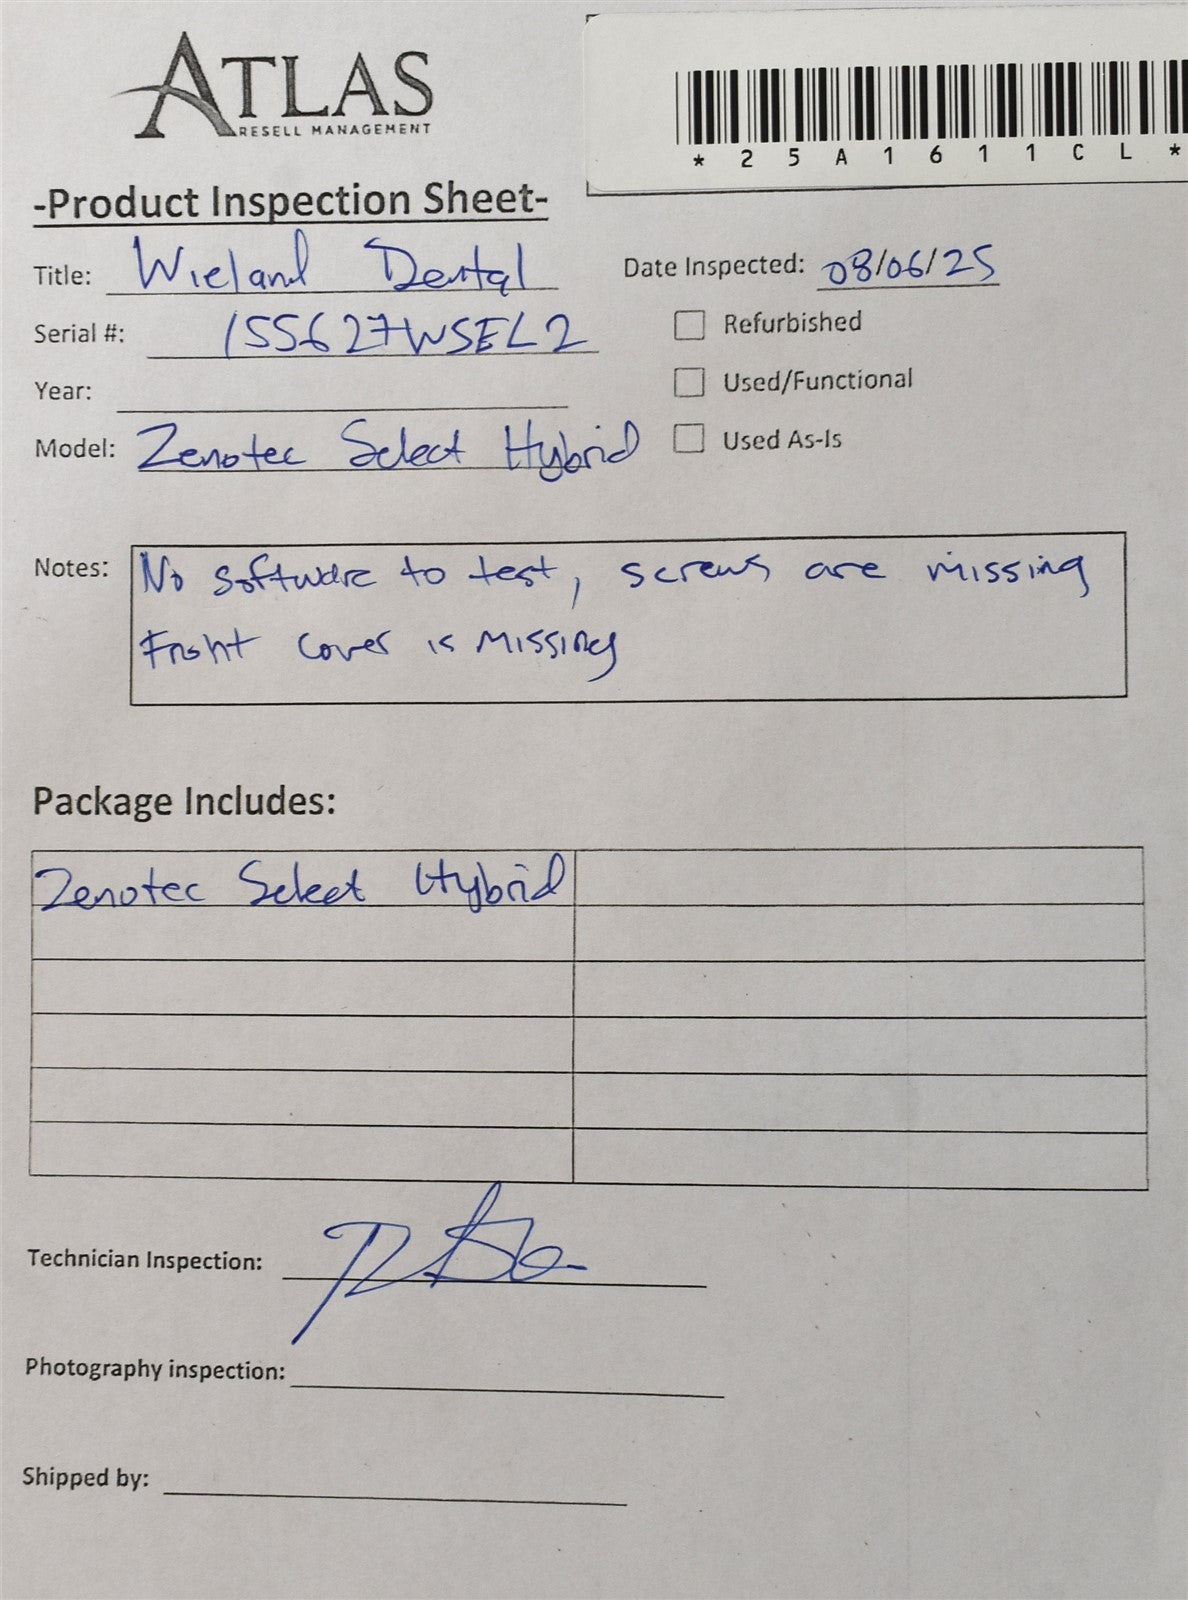 ATLAS
RESELL MANAGEMENT
* 2 5 A 1 6 1 1 C L *
-Product Inspection Sheet-
Title: Wieland Dental
Date Inspected: 08/06/25
Serial #: 155627WSEL2
Refurbished
Year:
Used/Functional
Model: Zenotec Select Hybrid
Used As-Is
Notes: No software to test, screws are missing
Front cover is missing
Package Includes:
Zenotec Select Hybrid
Technician Inspection:
Photography inspection:
Shipped by: